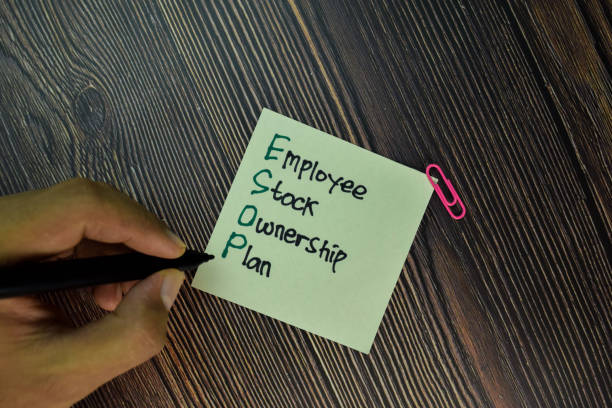 Employee
Stock
Ownership
Plan